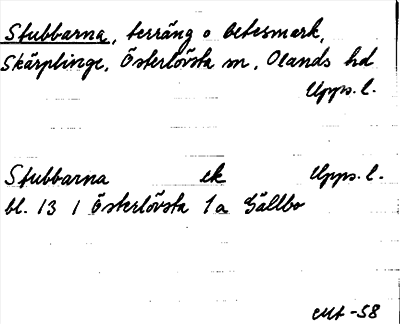 Stubbarna, terräng o betesmark,
Skärplinge, Österlövsta sn, Olands hd
Upps. l.
Stubbarna ek Upps. l.
bl. 13 i Österlövsta 1a Gällbo
-58